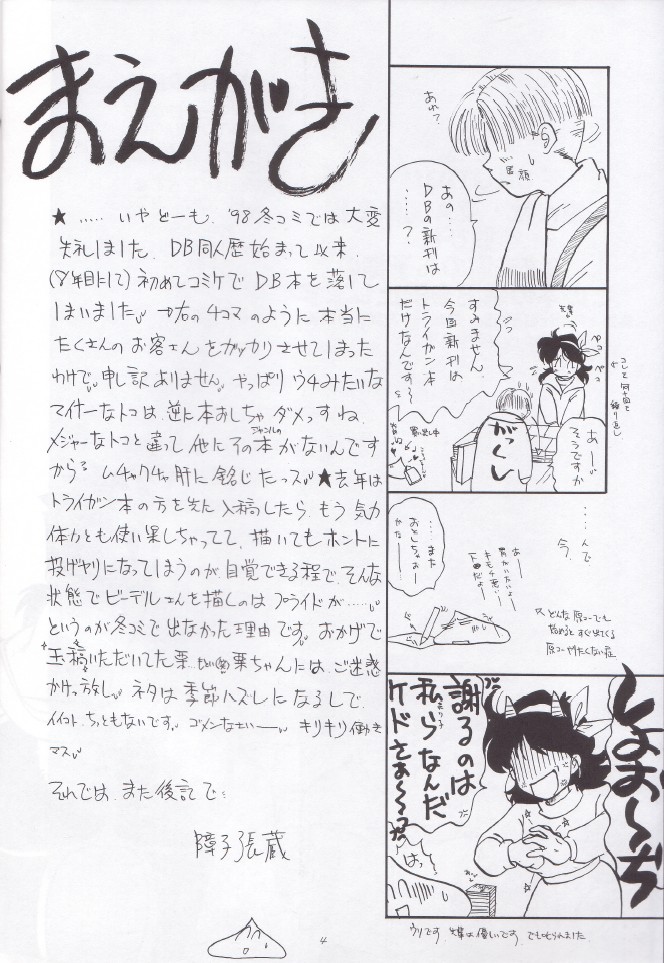 まえがき
★ ..... いやどーも、'98冬コミでは大変
失礼しました、DB同人歴始まって以来、
(8年目にして)初めてコミケでDB本を落して
しまいました →右の4コマのように本当に
たくさんのお客さんをガッカリさせてしまった
わけで、申し訳ありません。やっぱりウチみたいな
マイナーなトコは、逆に本おしちゃダメっすね、
メジャーなトコと違って他にその本がないんです
ジャンルの
から、ムチャクチャ肝に銘じたっス ★去年は
トライガン本の方を先に入稿したら、もう気力
体力とも使い果しちゃってて、描いてもホントに
投げヤリになってしまうのが、自覚できる程で、そんな
状態でビーデルさんを描くのはプライドが......
というのが冬コミで出なかった理由です。おかげで
玉稿いただいてた栗 栗ちゃんには、ご迷惑
かけっ放し、ネタは季節ハズしになるしで、
イイコト、ちっともないです。ゴメンなさいー キリキリ働き
マス
それでは、また後記で
障子張蔵
4
あれ?
笑顔
あの....
DBの新刊は
.....?
すみません、
今回新刊は
トライガン本
だけなんです〜
ペコ
ペコ
あー
そうですか
がっくし
コレを何十回と
繰り返し
......んで
今、
.....また
おとしちゃおー
かなー
あー
胃がいたいよー
キモチ悪いー
下痢だよー
どんな原コーでも
始めるとすぐ出てくる
原コーやりたくない症
しょお〜ぢ
謝るのは
私らなんだ
ケドさぁ〜〜〜
はっ